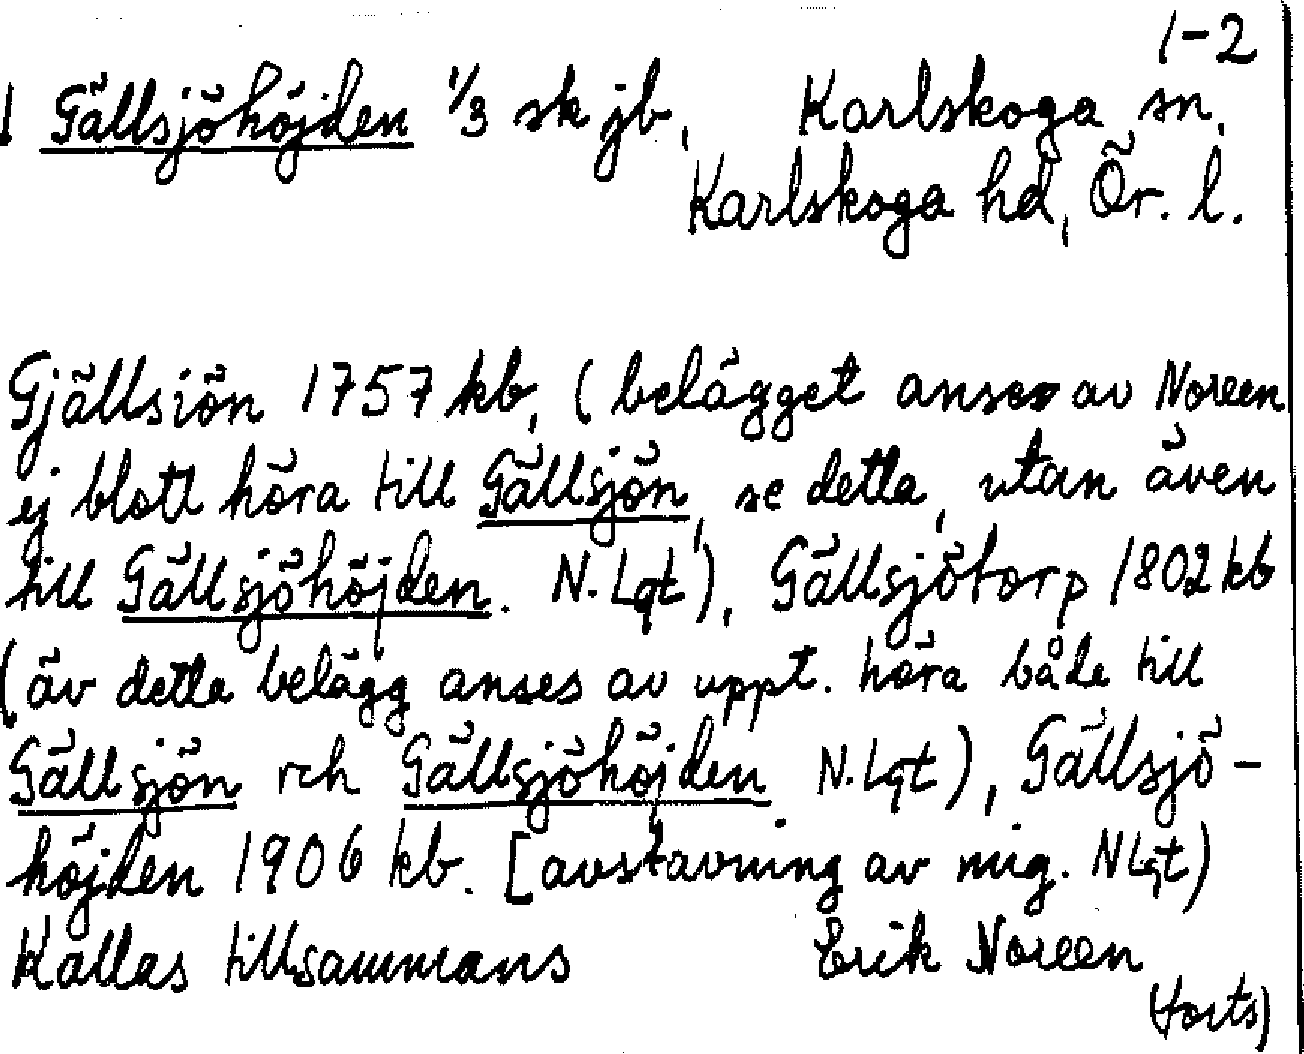 1-2
Gällsjöhöjden 1/3 sk jb, Karlskoga sn,
Karlskoga hd, Ör. l.
Gjällsiön 1757 kb, (belägget anses av Noreen
ej blott höra till Gällsjön, se detta, utan även
till Gällsjöhöjden. N. Lqt), Gällsjötorp 1802 kb
(äv detta belägg anses av uppt. höra både till
Gällsjön och Gällsjöhöjden N. Lqt), Gällsjö-
höjden 1906 kb. [avstavning av mig. N Lqt)
Kallas tillsammans Erik Noreen
(forts)